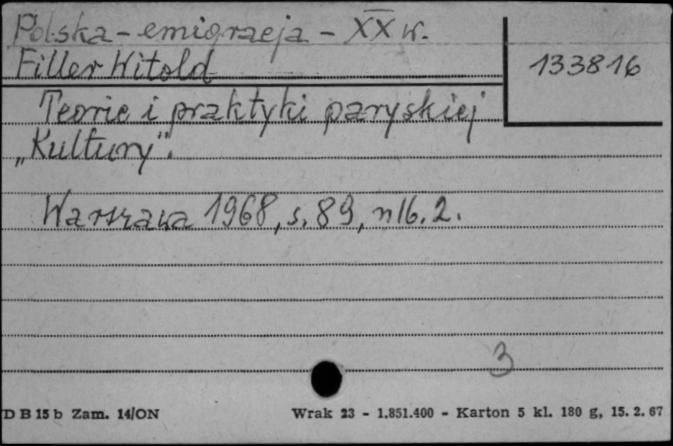 Polska - emigracja - XX w.
Filler Witold
133816
Teorie i praktyki paryskiej
„Kultury”.
Warszawa 1968, s. 89, nlb. 2.
3
D B 15 b Zam. 14/ON
Wrak 23 - 1.851.400 - Karton 5 kl. 180 g, 15. 2. 67